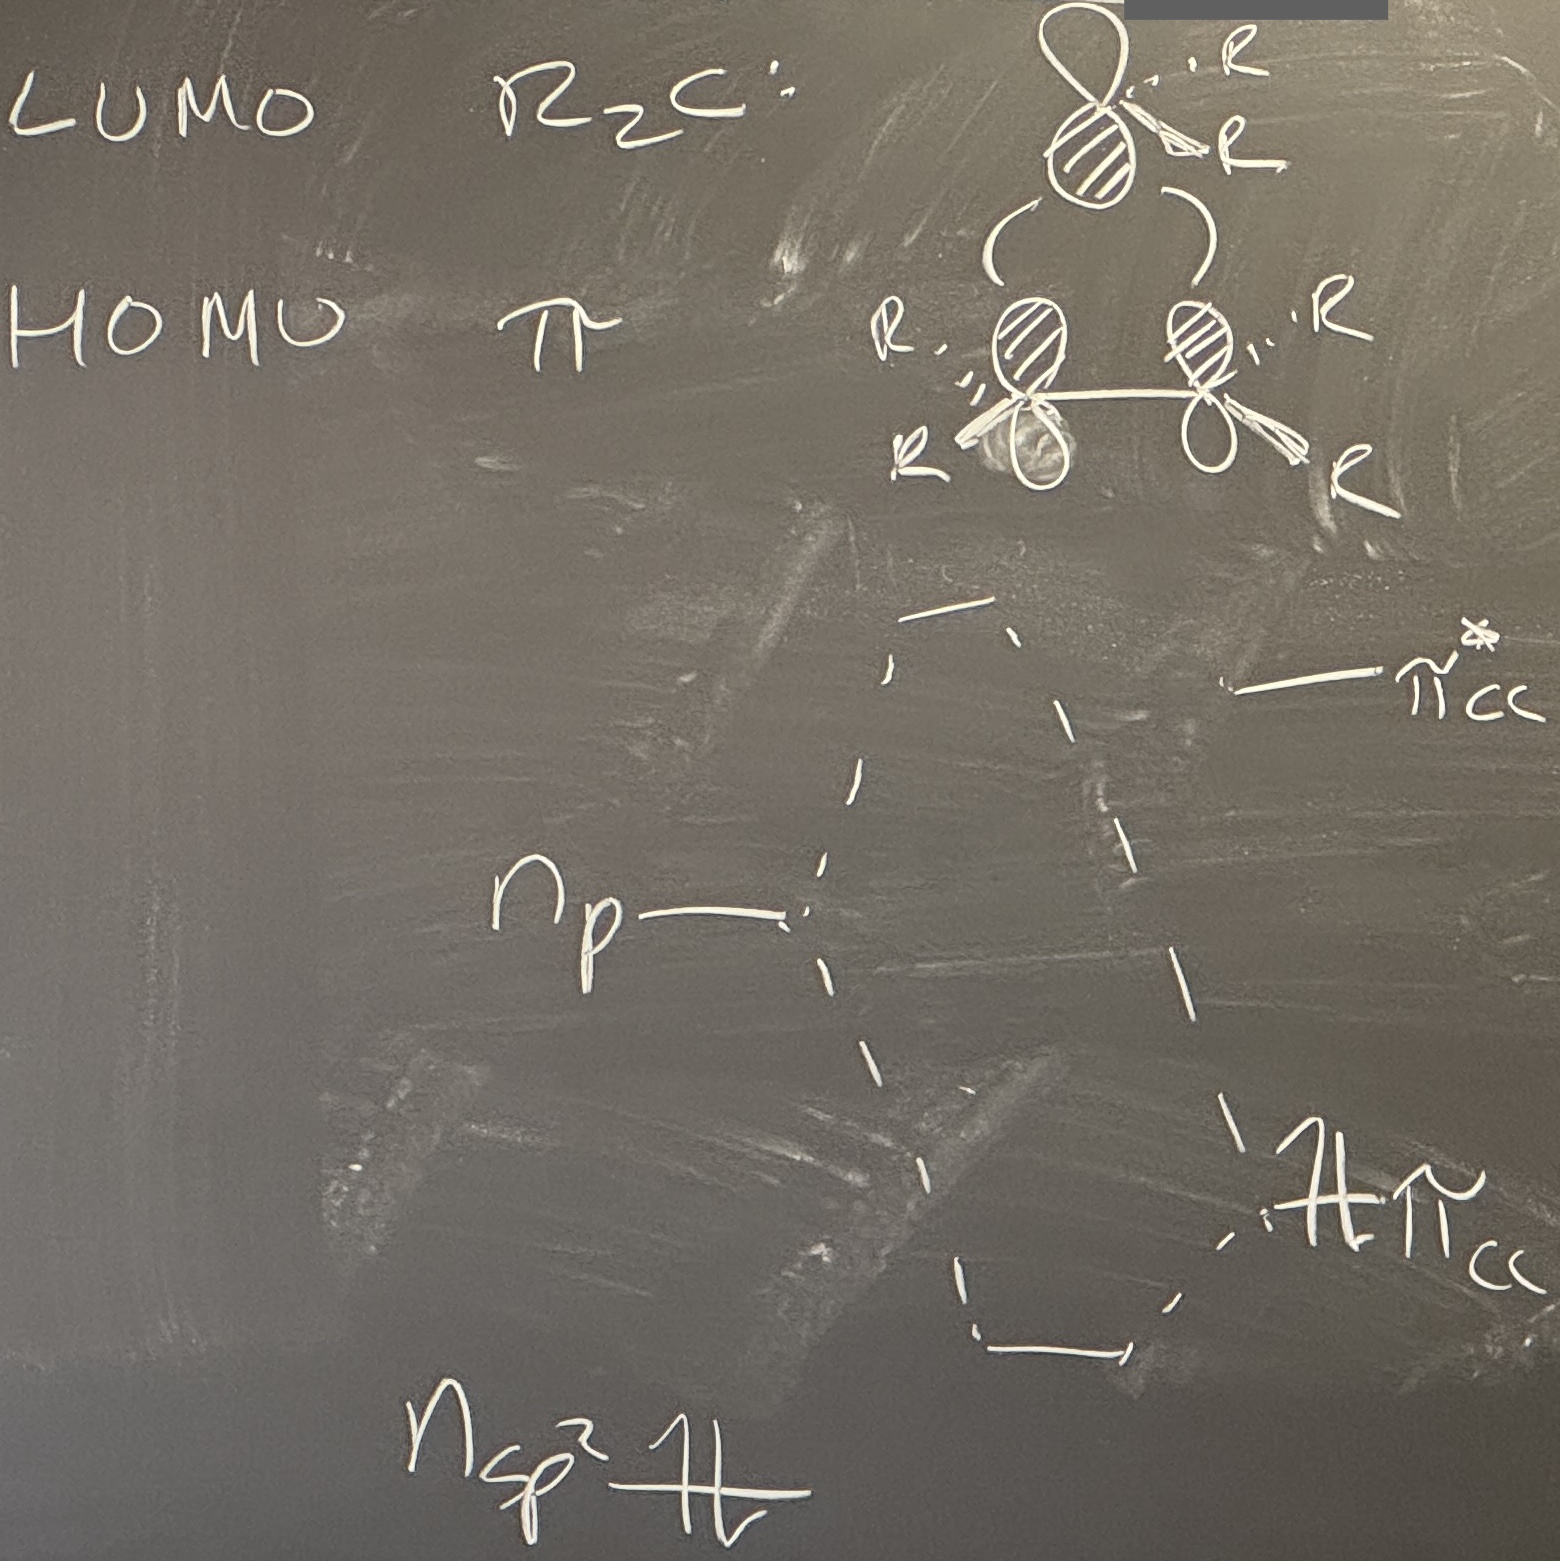 R
LUMO R₂C:
R
HOMO π R R
R R
π*cc
np
πcc
nsp²